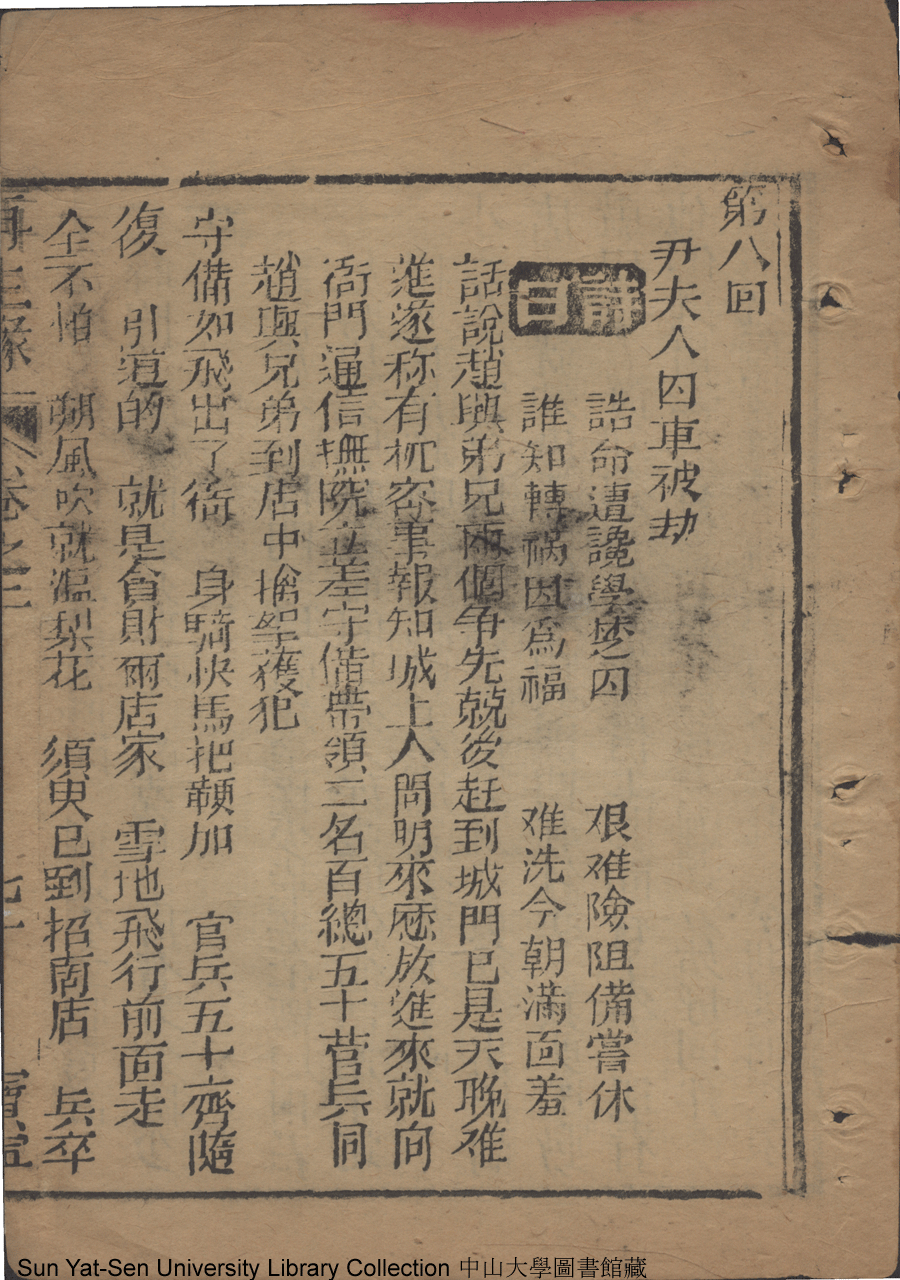 第八回
尹夫人囚車被劫
詩曰
誥命遭讒學楚囚　艰难險阻備嘗休
誰知轉禍因爲福　难洗今朝滿面羞
話說趙興弟兄兩個争先兢後赶到城門已是天晚难
進遂称有机密事報知城上人問明來厯放進來就向
衙門通信撫院立差守偹帶領二名百總五十营兵同
趙興兄弟到店中擒拏獲犯
守備如飛出了衙　身騎快馬把鞭加　官兵五十齊隨
復　引道的　就是貪財爾店家　雪地飛行前面走
全不怕　朔風吹就滿梨花　須臾已到招商店　兵卒
再生緣　卷之三　七十　寶寧
Sun Yat-Sen University Library Collection 中山大學圖書館藏